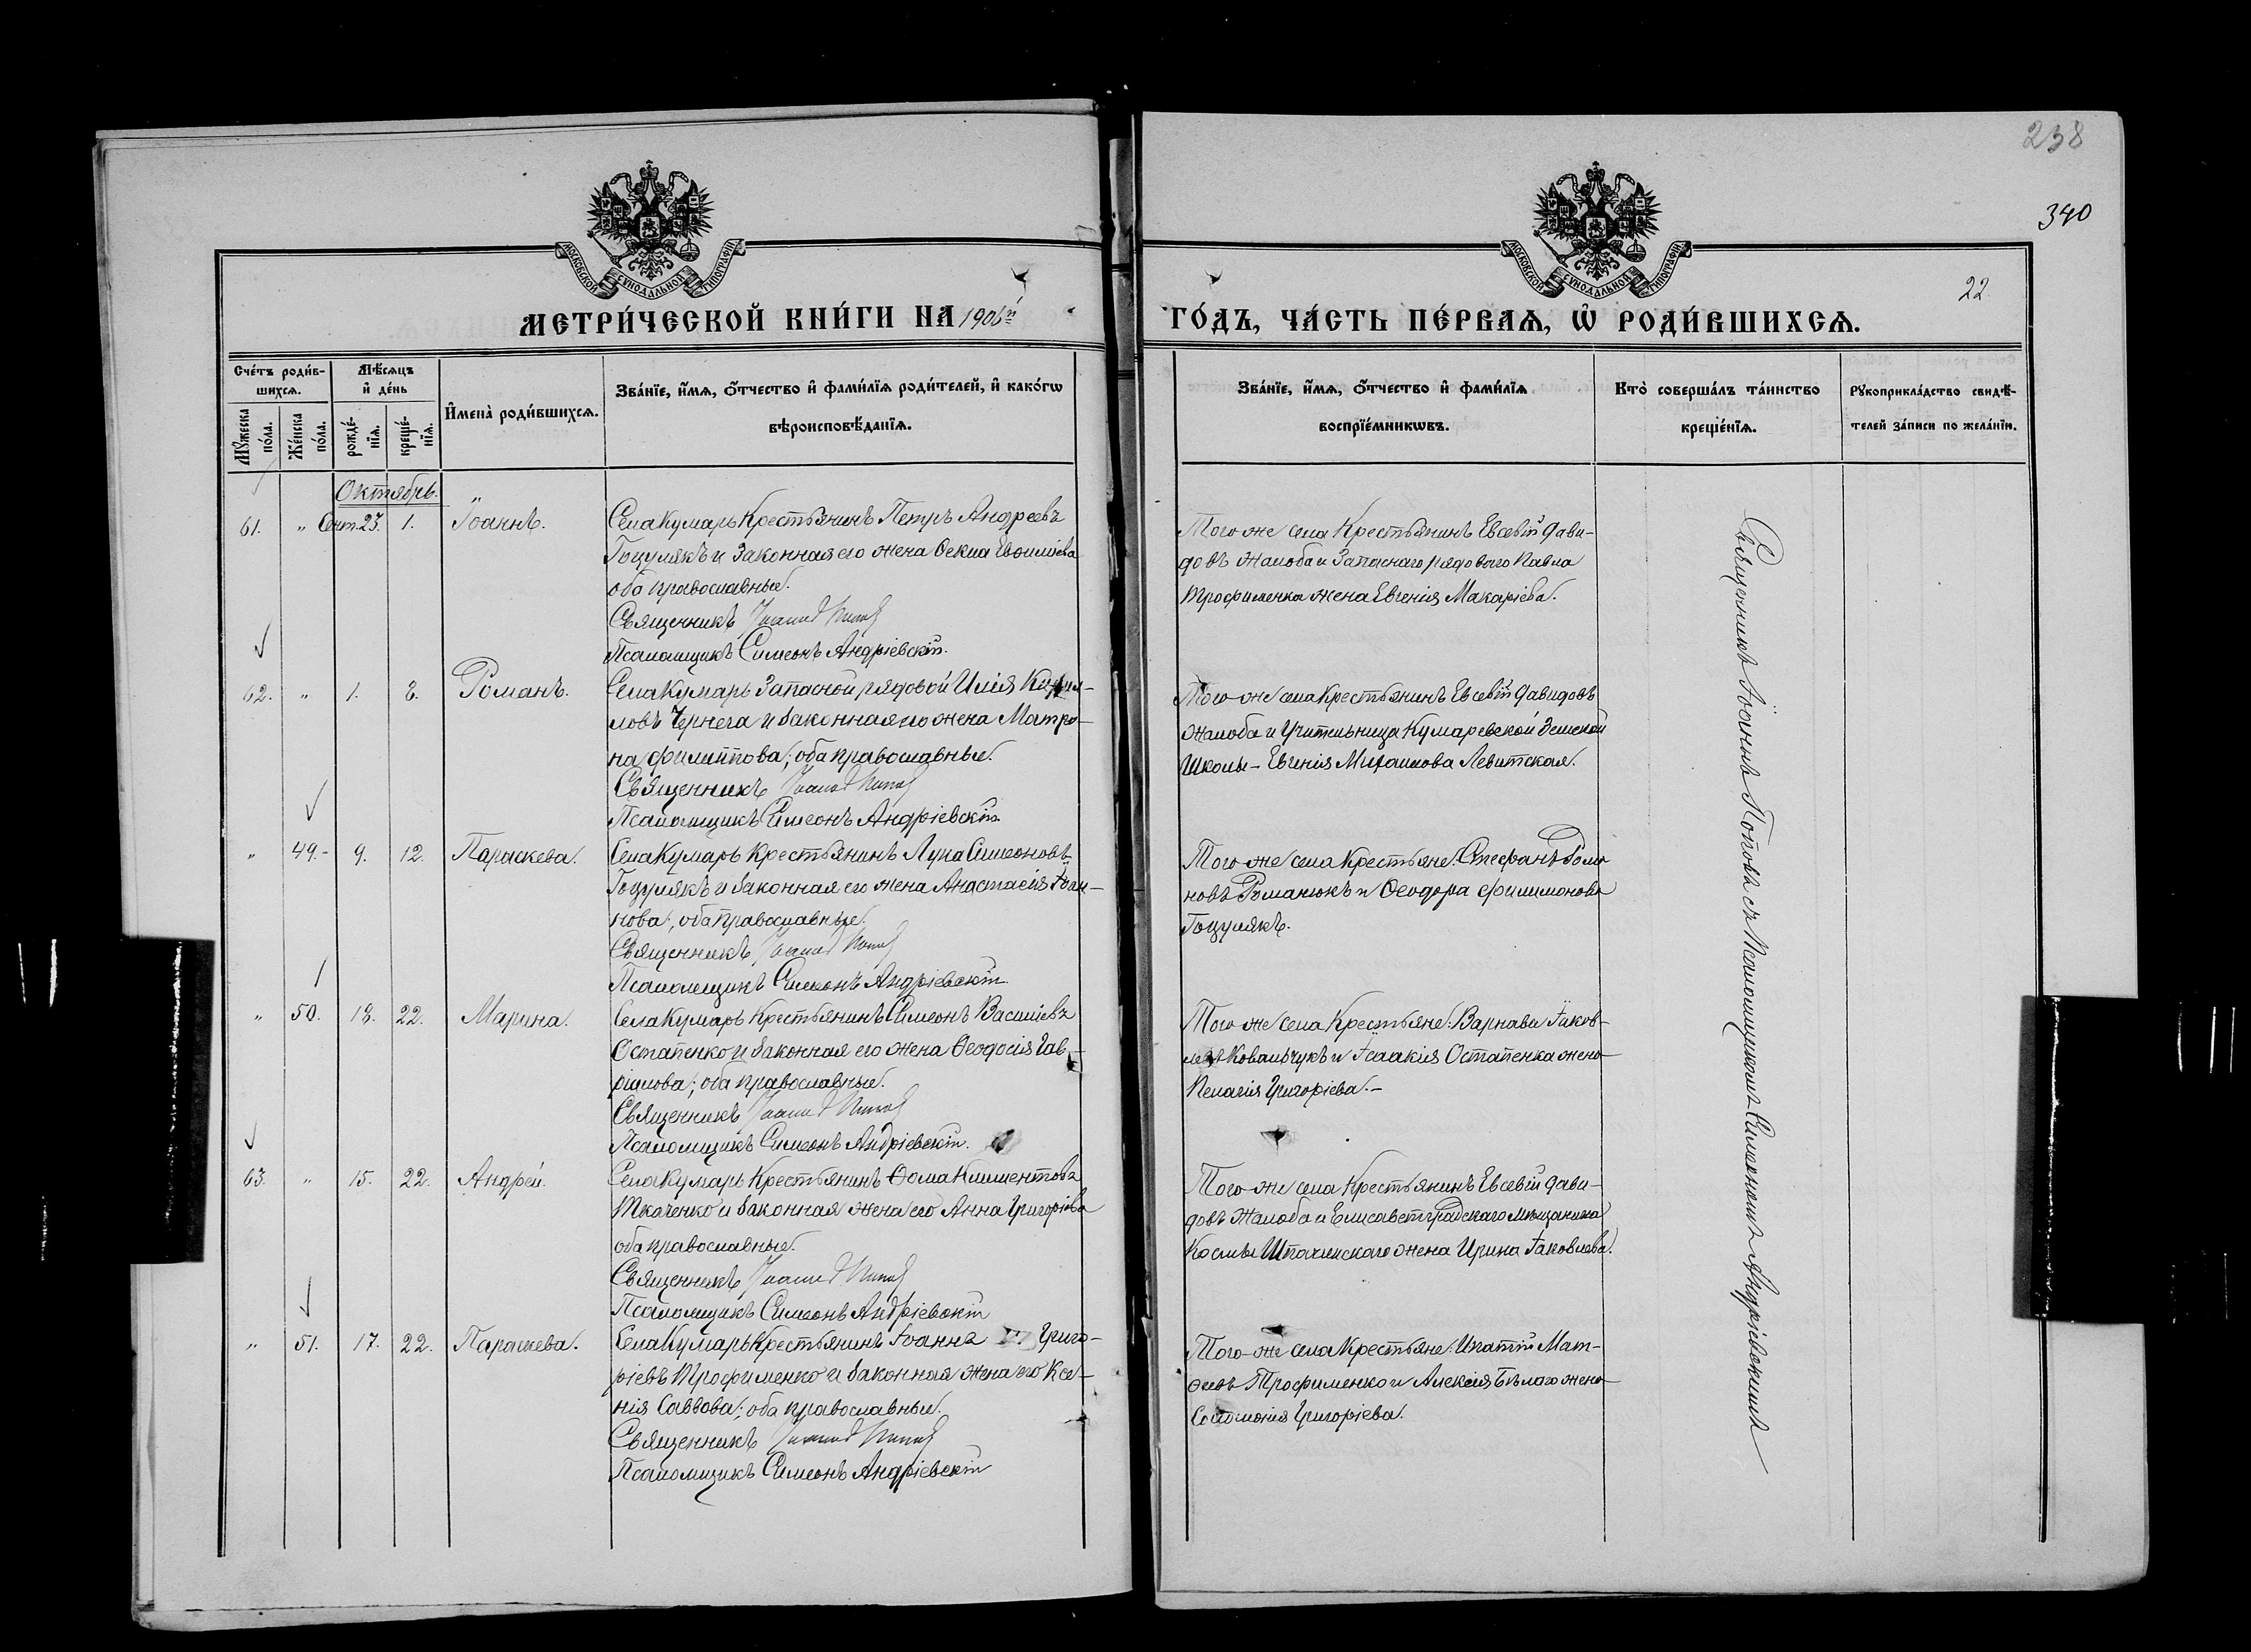 238
340
22
МОСКОВСКОЙ СѴНОДАЛЬНОЙ ТИПОГРАФІИ
МОСКОВСКОЙ СѴНОДАЛЬНОЙ ТИПОГРАФІИ
МЕТРИ́ЧЕСКОЙ КНИ́ГИ НА 1906й
ГО́ДЪ, ЧА́СТЬ ПЕ́РВАѦ, Ѡ РОДИ́ВШИХСѦ.
Сче́тъ роди́в-
шихсѧ.
Мꙋжеска по́ла.
Же́нска по́ла.
Мѣ́сѧцъ
и҆ де́нь
рожде́-
нїѧ.
креще́-
нїѧ.
И҆мена̀ роди́вшихсѧ.
Зва́нїе, и҆́мѧ, ѻ҆́тчество и҆ фами́лїѧ роди́телей, и҆ како́гѡ
вѣроисповѣ́данїѧ.
Зва́нїе, и҆́мѧ, ѻ҆́тчество и҆ фами́лїѧ
воспрїе́мникѡвъ.
Кто̀ соверша́лъ та́инство
креще́нїѧ.
Рꙋкоприкла́дство свидѣ́-
телей за́писи по жела́нїю.
Октябрь.
61. " Сент. 23. 1. Іоаннъ.
Села Кумарь Крестьянинъ Петръ Андреевъ
Гоцулякъ и законная его жена Ѳекла Евѳиміева
оба православные.
Священникъ Іоаннъ Поповъ
Псаломщикъ Симеонъ Андріевскій.
Того же села Крестьянинъ Евсевій Дави-
довъ Жалоба и Запаснаго рядового Павла
Трофименка жена Евгенія Макаріева.
62. " 1. 8. Романъ.
Села Кумарь Запасной рядовой Илія
ловъ Чернега и законная его жена Матро-
на Филиппова; оба православные.
Священникъ Іоаннъ Поповъ
Псаломщикъ Симеонъ Андріевскій
Того же села Крестьянинъ Евсевій Давидовъ
Жалоба и Учительница Кумаревской Земской
Школы - Евгенія Михаилова Левитская.
" 49.- 9. 12. Параскева.
Села Кумарь Крестьянинъ Лука Симеоновъ
Гоцулякъ и законная его жена Анастасія Іоан-
нова; оба православные.
Священникъ Іоаннъ Поповъ
Псаломщикъ Симеонъ Андріевскій
Того же села Крестьяне: Стефанъ Рома
новъ Романюкъ и Ѳеодора Филимонова
Гоцулякъ.
" 50. 18. 22. Марина.
Села Кумарь Крестьянинъ Симеонъ Василіевъ
Остапенко и законная его жена Ѳеодосія Гав-
ріилова; оба православные.
Священникъ Іоаннъ Поповъ
Псаломщикъ Симеонъ Андріевскій.
Того же села Крестьяне: Варнава Іаков-
левъ Ковальчукъ и Ісаакія Остапенка жена
Пелагія Григоріева.-
63. " 15. 22. Андрей.
Села Кумарь Крестьянинъ Ѳома Климентовъ
Ткаченко и законная жена его Анна Григоріева
оба православные.
Священникъ Іоаннъ Поповъ
Псаломщикъ Симеонъ Андріевскій
Того же села Крестьянинъ Евсевій Дави-
довъ Жалоба и Елисаветградскаго мѣщанина
Космы жена Ирина Іаковлева.
" 51. 17. 22. Параскева.
Села Кумарь Крестьянинъ Іоаннъ Григо-
ріевъ Трофименко и законная жена его Ксе-
нія Саввова; оба православные.
Священникъ Іоаннъ Поповъ
Псаломщикъ Симеонъ Андріевскій
Того-же села Крестьяне: Ипатій Мат-
ѳеевъ Трофименко и Алексія Бѣлаго жена
Соломонія Григоріева.
Священникъ Іоаннъ Поповъ съ Псаломщикомъ Симеономъ Андріевскимъ